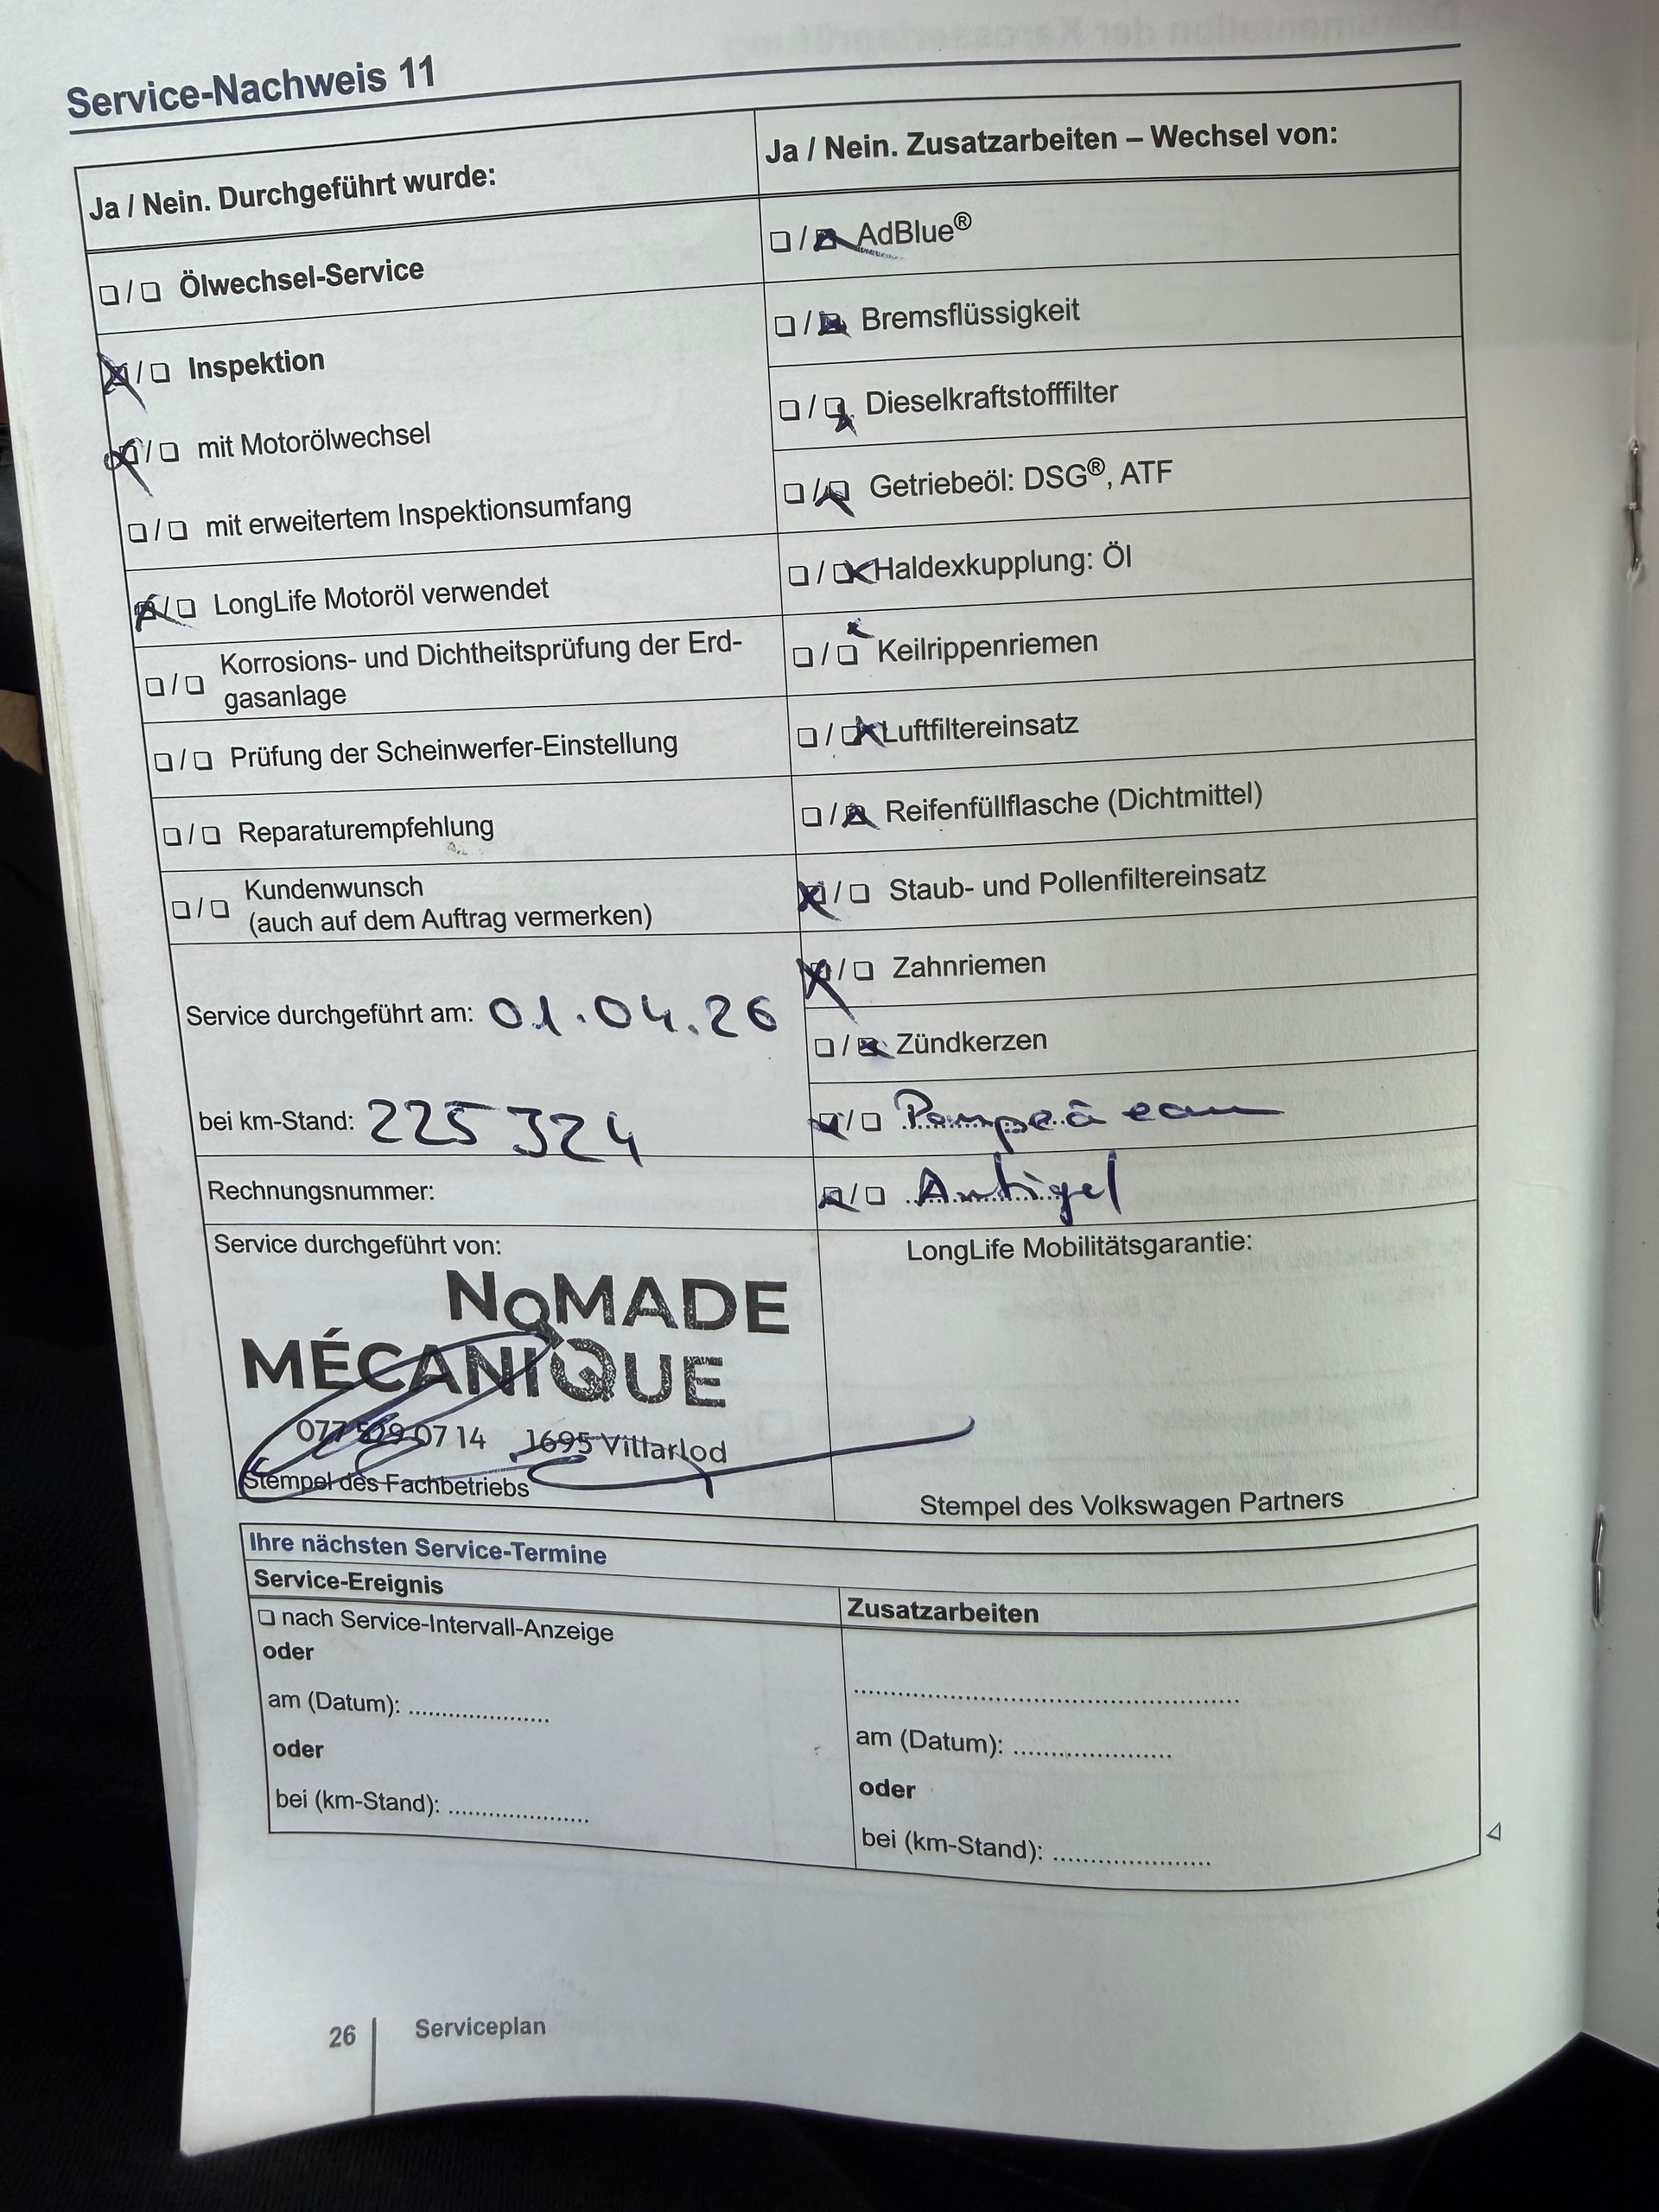 Service-Nachweis 11
Ja / Nein. Durchgeführt wurde:
❏ / ❏ Ölwechsel-Service
❏ / ❏ Inspektion
❏ / ❏ mit Motorölwechsel
❏ / ❏ mit erweitertem Inspektionsumfang
❏ / ❏ LongLife Motoröl verwendet
❏ / ❏ Korrosions- und Dichtheitsprüfung der Erd-
gasanlage
❏ / ❏ Prüfung der Scheinwerfer-Einstellung
❏ / ❏ Reparaturempfehlung
❏ / ❏ Kundenwunsch
(auch auf dem Auftrag vermerken)
Service durchgeführt am: 01.04.26
bei km-Stand: 225 324
Rechnungsnummer:
Service durchgeführt von:
NOMADE
MÉCANIQUE
077 529 07 14 1695 Villarlod
Stempel des Fachbetriebs
Ja / Nein. Zusatzarbeiten – Wechsel von:
❏ / ❏ AdBlue®
❏ / ❏ Bremsflüssigkeit
❏ / ❏ Dieselkraftstofffilter
❏ / ❏ Getriebeöl: DSG®, ATF
❏ / ❏ Haldexkupplung: Öl
❏ / ❏ Keilrippenriemen
❏ / ❏ Luftfiltereinsatz
❏ / ❏ Reifenfüllflasche (Dichtmittel)
❏ / ❏ Staub- und Pollenfiltereinsatz
❏ / ❏ Zahnriemen
❏ / ❏ Zündkerzen
❏ / ❏ Pompe à eau
❏ / ❏ Antigel
LongLife Mobilitätsgarantie:
Stempel des Volkswagen Partners
Ihre nächsten Service-Termine
Service-Ereignis
❏ nach Service-Intervall-Anzeige
oder
am (Datum): .....................
oder
bei (km-Stand): .....................
Zusatzarbeiten
..........................................................
am (Datum): ........................
oder
bei (km-Stand): ........................
26 Serviceplan